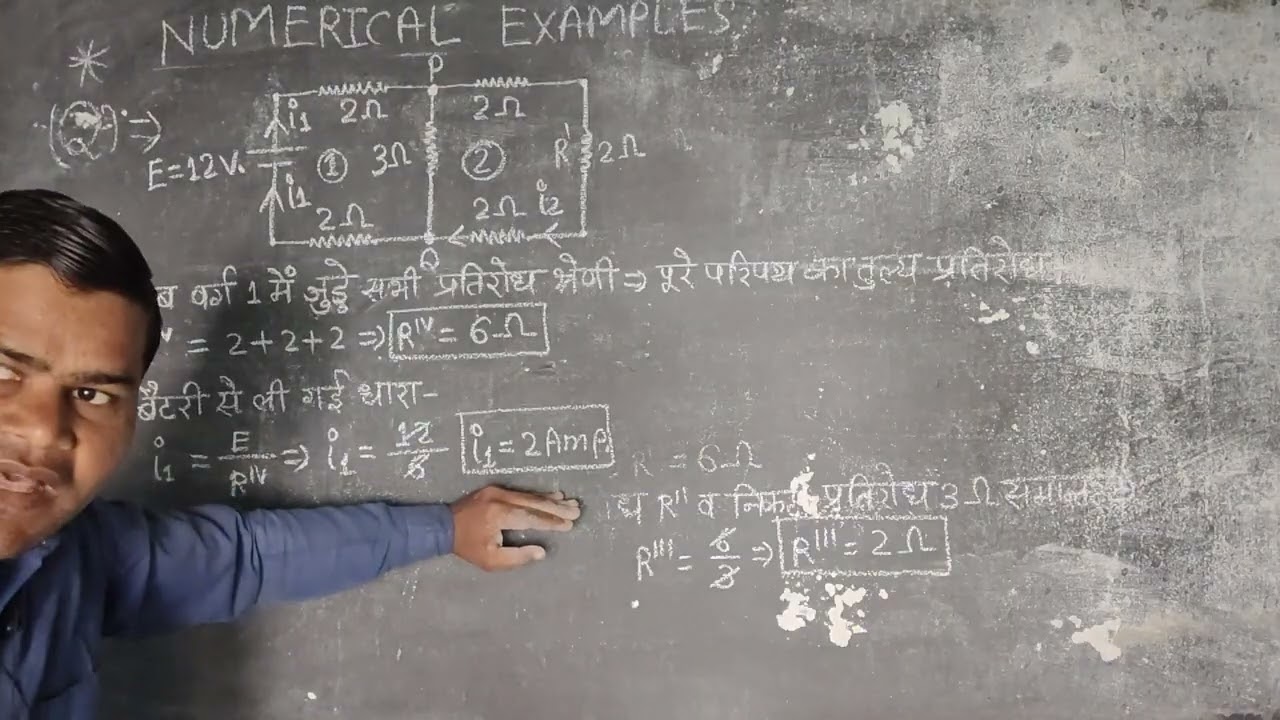 NUMERICAL EXAMPLES
P
i1 2Ω 2Ω
(Q) ⇒ E=12V. ① 3Ω ② R' 2Ω
i1 2Ω 2Ω i2
Q
ब वर्ग 1 में जुड़े सभी प्रतिरोध श्रेणी ⇒ पूरे परिपथ का तुल्य प्रतिरोध
= 2+2+2 ⇒ R^IV = 6Ω
बैटरी से ली गई धारा-
i1 = E/R^IV ⇒ i1 = 12/6 i1 = 2Amp
R = 6Ω
R'' व निकट प्रतिरोध 3Ω समान्तर
R''' = 6/3 ⇒ R''' = 2Ω